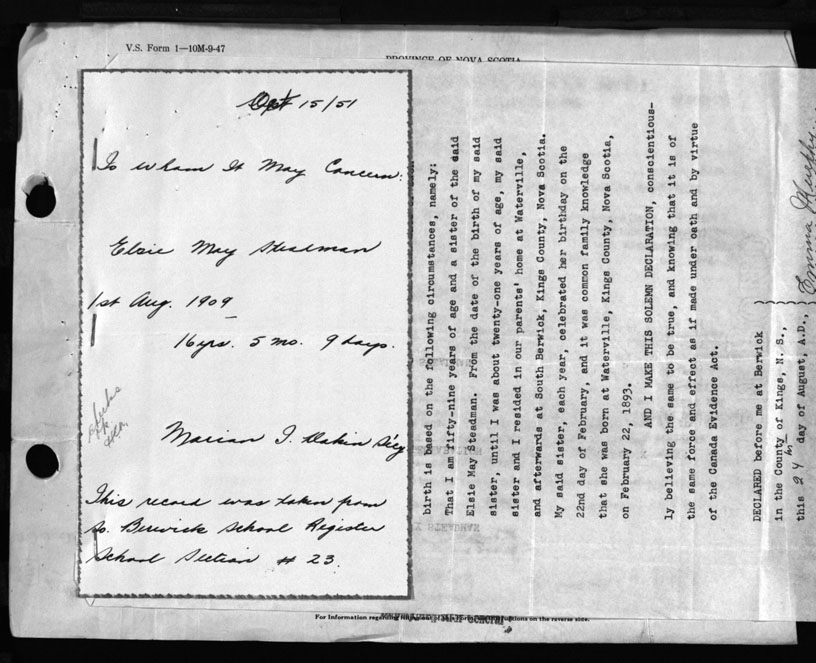 V.S. Form 1—10M-9-47
PROVINCE OF NOVA SCOTIA
Oct 15/51
To whom It May Concern:
Elsie May Steadman
1st Aug. 1909
16 yrs. 5 mo. 9 days.
Marian I. Dakin Sec'y
This record was taken from
So. Berwick School Register
School Section # 23.
birth is based on the following circumstances, namely:
That I am fifty-nine years of age and a sister of the said
Elsie May Steadman. From the date of the birth of my said
sister, until I was about twenty-one years of age, my said
sister and I resided in our parents' home at Waterville,
and afterwards at South Berwick, Kings County, Nova Scotia.
My said sister, each year, celebrated her birthday on the
22nd day of February, and it was common family knowledge
that she was born at Waterville, Kings County, Nova Scotia,
on February 22, 1893.
AND I MAKE THIS SOLEMN DECLARATION, conscientious-
ly believing the same to be true, and knowing that it is of
the same force and effect as if made under oath and by virtue
of the Canada Evidence Act.
DECLARED before me at Berwick
in the County of Kings, N. S.,
this 24 day of August, A.D.,
Emma Murphy
For Information regarding on the reverse side.